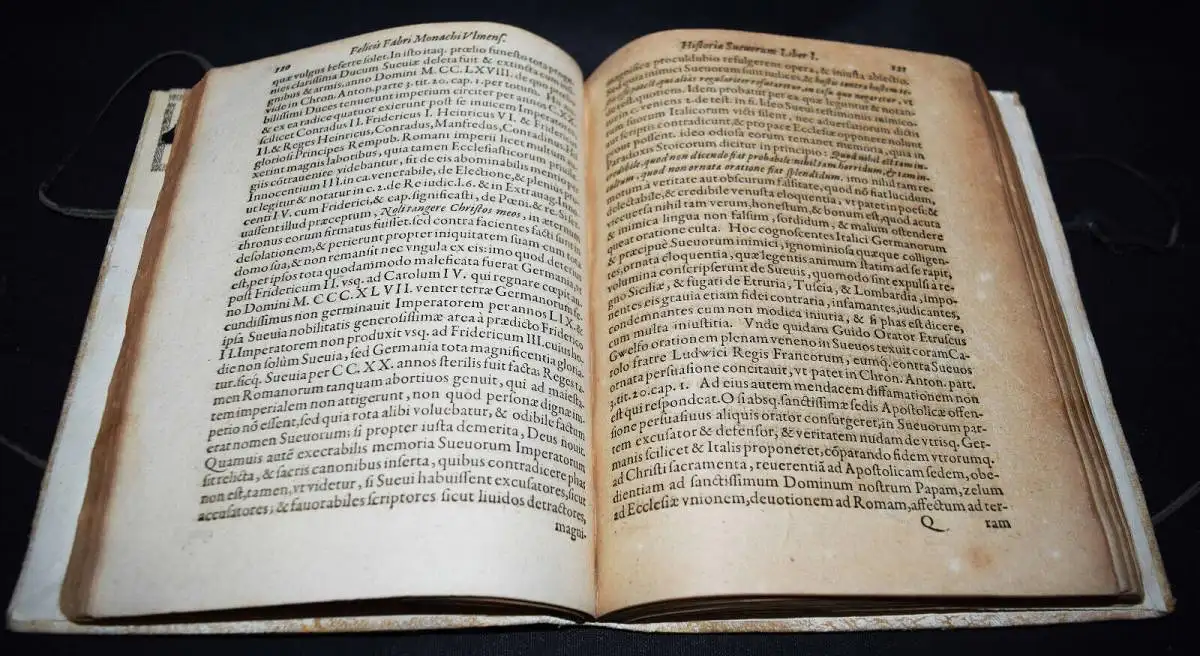 120
Felicis Fabri Monachi Vlmens.
quæ vulgus heferre solet. In isto itaq. prœlio funesto tota proge-
nies clarissima Ducum Sueuiæ deleta fuit & extincta cum insi-
gnibus & armis, anno Domini M. CC. LXVIII. de quo
vide in Chron. Anton. parte 3. tit. 20. cap. 1. per totum. Hi no-
bilissimi Duces tenuerunt imperium circiter per annos CXX.
& ex ea radice quatuor exierunt post se inuicem Imperatores,
scilicet Conradus II. Fridericus I. Heinricus VI. & Fridericus
II. & Reges Heinricus, Conradus, Manfredus, Conradinus. Hi
gloriosi Principes Rempub. Romani imperij licet multum
xerint magnis laboribus, quia tamen Ecclesiasticorum priuile-
giis cōtrauenire videbantur, fit de eis abominabilis mentio per
Innocentium III. in ca. venerabile, de Electione, & plenius, prout
vt legitur & notatur in c. 2. de Re iudic. l. 6. & in Extrauag. Inno-
centij IV. cum Friderici, & cap. significasti, de Pœni. & re. Si ser-
uassent illud præceptum, Noli tangere Christos meos, in æternum
thronus eorum firmatus fuisset. sed contra facientes facti sunt in
desolationem, & perierunt propter iniquitatem suam cum tota
domo sua, & non remansit nec vngula ex eis: imo quod deterius
est, per ipsos tota quodammodo maleficata fuerat Germania, vt
post Fridericum II. vsq. ad Carolum IV. qui regnare cœpit an-
no Domini M. CCC. XLVII. venter terræ Germanorum fe-
cundissimus non germinauit Imperatorem per annos LIX. &
ipsa Sueuia nobilitatis generosissimæ area à prædicto Friderico
II. Imperatorem non produxit vsq. ad Fridericum III. cuius ho-
die non solùm Sueuia, sed Germania tota magnificentia gloria-
tur. sicq. Sueuia per CC. XX. annos sterilis fuit facta: Reges ta-
men Romanorum tanquam abortiuos genuit, qui ad maiesta-
tem imperialem non attigerunt, non quod personæ dignæ im-
perio nō essent, sed quia rota alibi voluebatur, & odibile factum
erat nomen Sueuorum: si propter iusta demerita, Deus nouit.
Quamuis autē execrabilis memoria Sueuorum Imperatorum
sit relicta, & sacris canonibus inserta, quibus contradicere phas
non est, tamen, vt videtur, si Sueui habuissent excusatores, sicut
accusatores; & fauorabiles scriptores sicut liuidos detractores,
magni-
Historiæ Sueuorum Liber I.
121
magnifica proculdubio refulgerent opera, & iniusta abiectio.
Sed quia inimici Sueuorum sunt iudices, & hosti contra hostem te-
sti
quod quotienu. Idem probatur per ea quæ leguntur & notan-
tur in c. veniens 2. de test. in fi. Ideo Sueui testimonijs inimico-
rum suorum Italicorum victi silent, nec aduersariorum dictis
aut scriptis contradicunt, & pro pace Ecclesiæ opponere nolunt
quod possent. ideo odiosa eorum remanet memoria, quia in
Paradoxis Stoicorum dicitur in principio: Quod nihil est tam in-
credibile, quod non dicendo fiat probabile: nihil tam horridum, & tam in-
cultum, quod non ornata oratione fiat splendidum. imo nihil tam re-
motum à veritate aut obscurum falsitate, quod nō fiat lucidum,
delectabile, & credibile venusta eloquentia, vt patet in poësi: &
viceuersa nihil tam verum, honestum, & bonum est, quod acuta
& inimica lingua non falsum, sordidum, & malum ostendere
queat oratione culta. Hoc cognoscentes Italici Germanorum
& præcipuè Sueuorum inimici, ignominiosa quæque colligen-
tes, ornata eloquentia, quæ legentis animum statim ad se rapit,
volumina conscripserunt de Sueuis, quomodo sint expulsi à re-
gno Siciliæ, & fugati de Etruria, Tuscia, & Lombardia, impo-
nentes eis grauia etiam fidei contraria, infamantes, iudicantes,
condemnantes cum non modica iniuria, & si phas est dicere,
cum multa iniustitia. Vnde quidam Guido Orator Etruscus
Gwelfo orationem plenam veneno in Sueuos texuit coram Ca-
rolo fratre Ludwici Regis Francorum, eumq. contra Sueuos
ornata persuasione concitauit, vt patet in Chron. Anton. part.
3. tit. 20. cap. 1. Ad eius autem mendacem diffamationem non
est qui respondeat. O si absq. sanctissimæ sedis Apostolicæ offen-
sione persuasiuus aliquis orator consurgeret, in Sueuorum par-
tem excusator & defensor, & veritatem nudam de vtrisq. Ger-
manis scilicet & Italis proponeret, cōparando fidem vtrorumq.
ad Christi sacramenta, reuerentiā ad Apostolicam sedem, obe-
dientiam ad sanctissimum Dominum nostrum Papam, zelum
ad Ecclesiæ vnionem, deuotionem ad Romam, affectum ad ter-
Q
ram